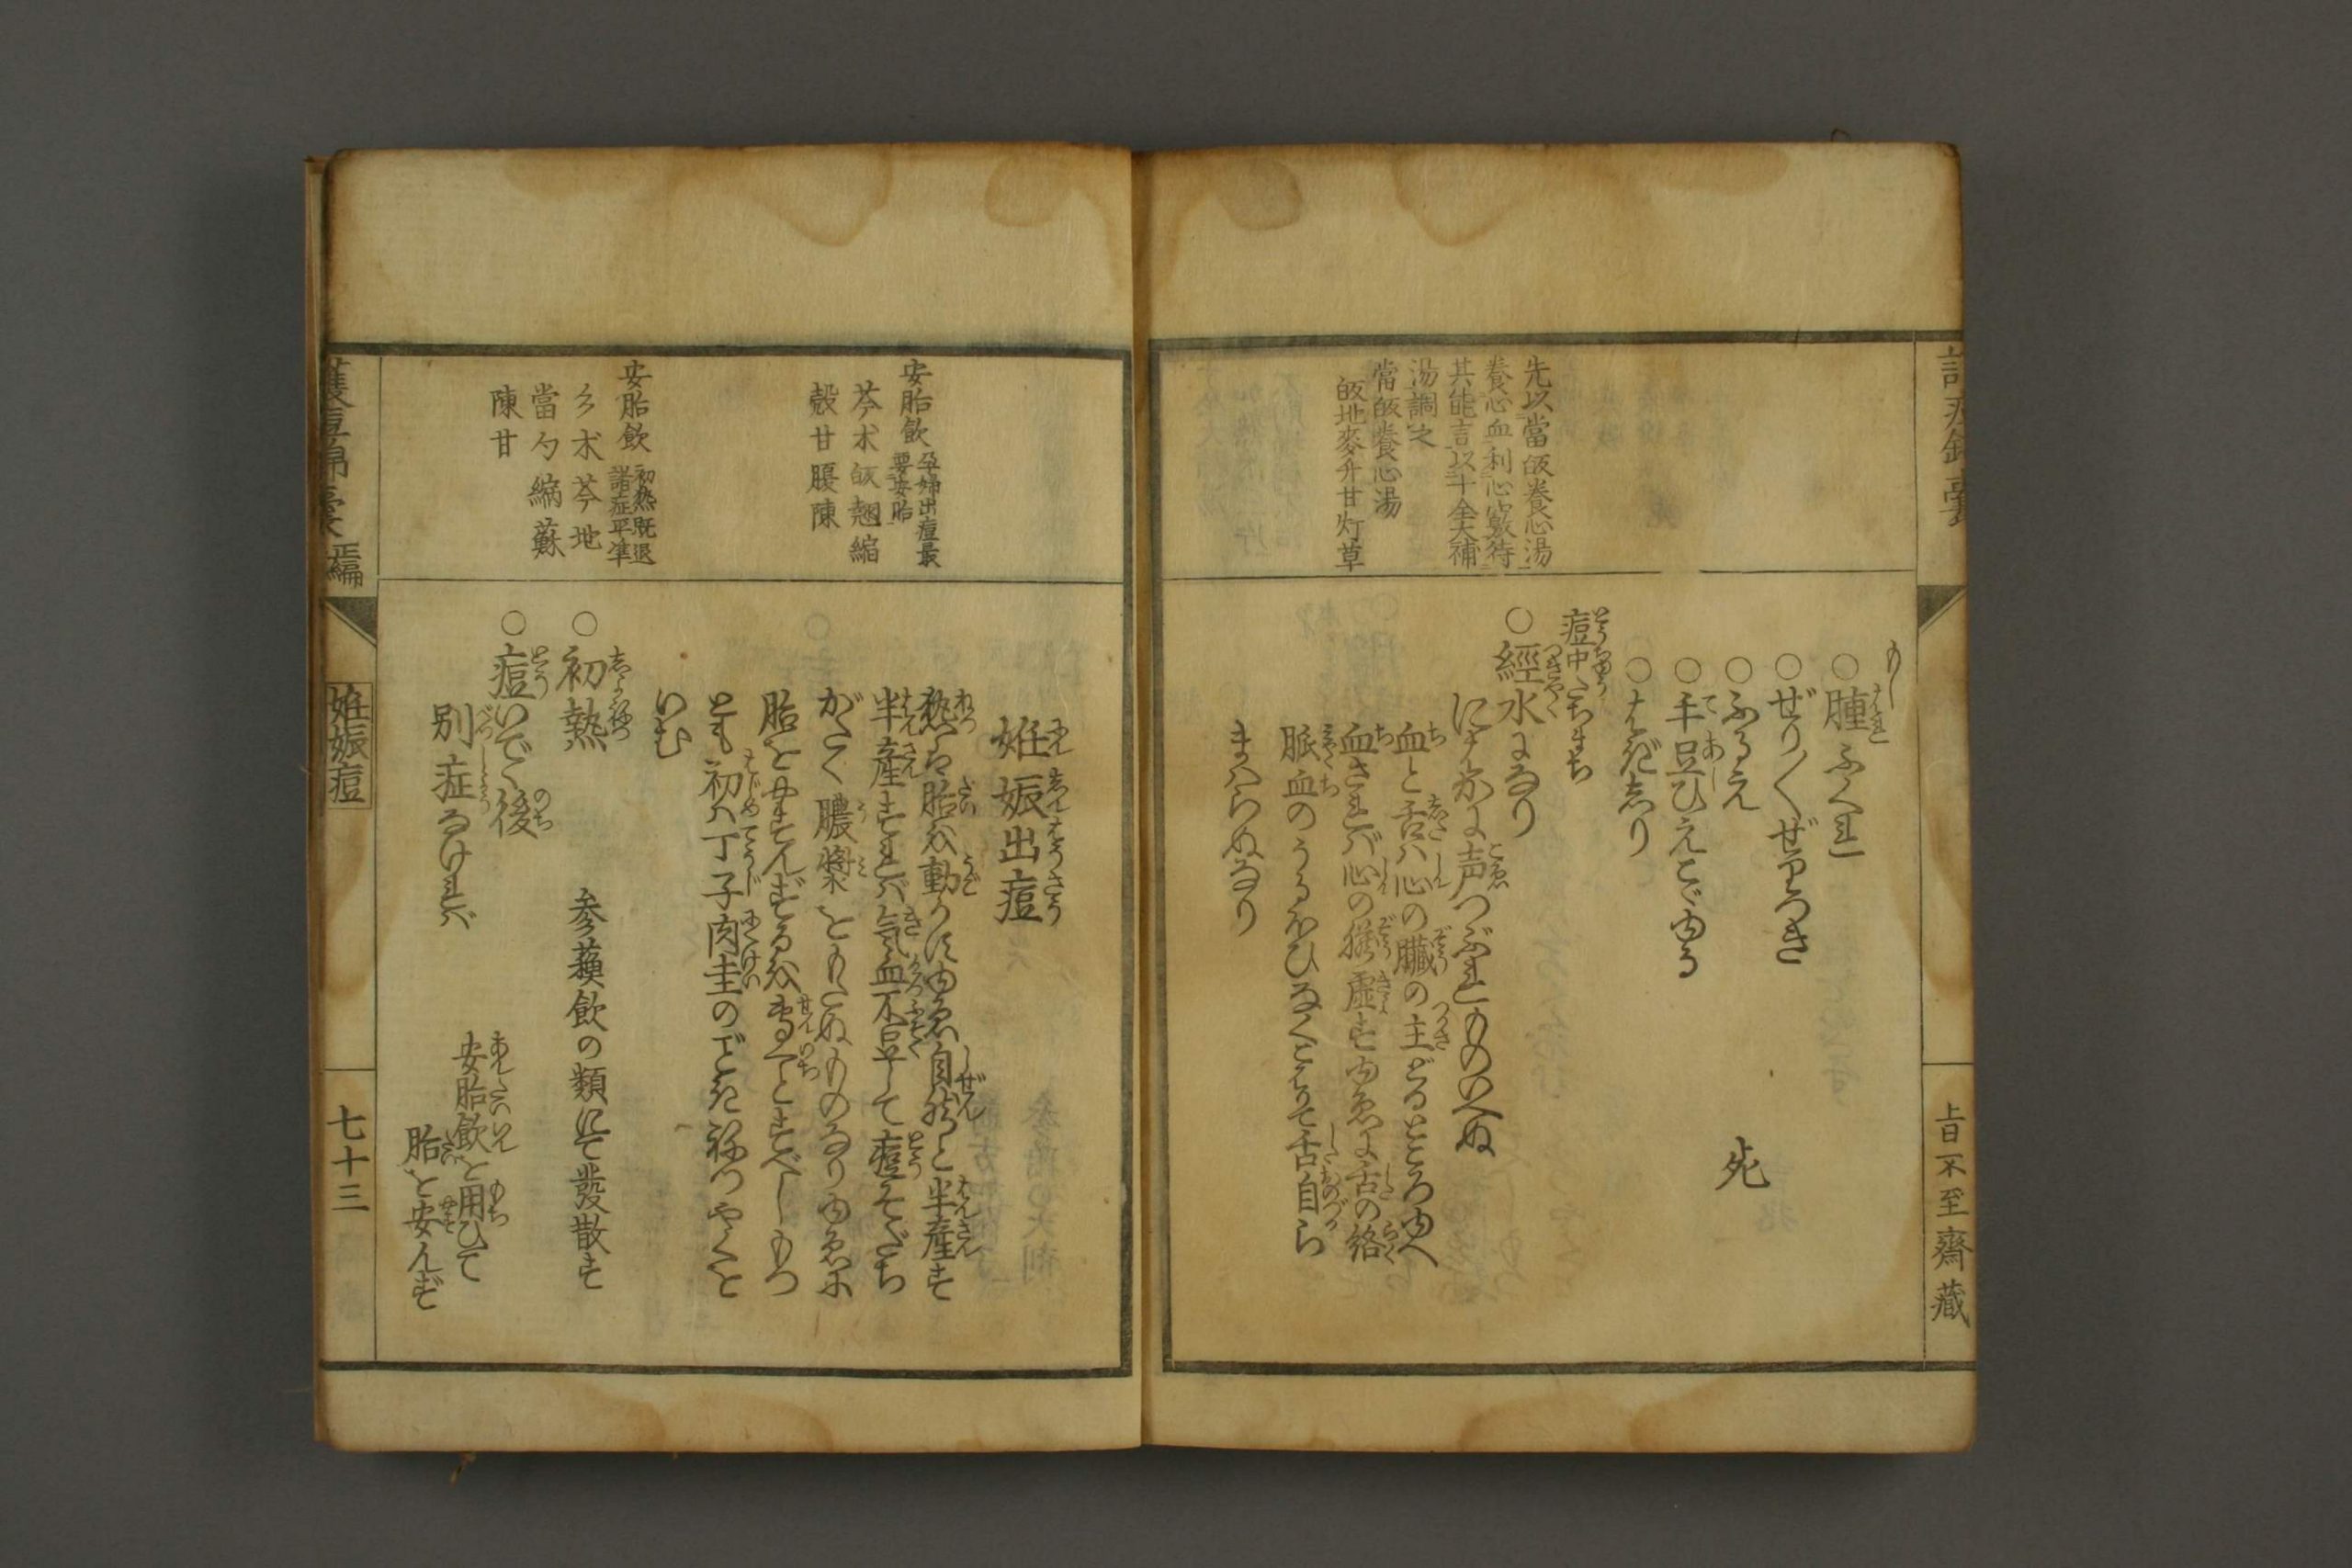 先以當皈養心湯
養心血利心竅待
其能言以十全大補
湯調之
當皈養心湯
皈地麥升甘灯草
もし
○腫ふくれ
○ぜり〳〵ぜりつき
○ふるえ
○手足ひえこゞゆる
○はぎしり
死
痘中たちまち
○經水になり
にはかに声つぶれものいへぬ
血と舌ハ心の臓の主どるところゆへ
血されバ心の臓虚すゆゑに舌の絡
脈血のうるおひなくこはりて舌自ら
まハらぬなり
上日不至齋藏
安胎飲
孕婦出痘最
要安胎
芩朮皈翹縮
殼甘腹陳
安胎飲
初熱既退
諸症平準
芎朮芩地
當勺縮蘇
陳甘
妊娠出痘
熱にて胎を動かすゆゑ自然と半産す
半産すれバ気血不足して痘そだち
がたく膿漿をもたぬものなりゆゑに
胎を安んずるを專一とすべしもつ
とも初ハ丁子肉圭のごとき祢つやくを
いむ
○初熱
参蘓飲の類にて發散す
○痘いでゝ後
別症なければ
安胎飲を用ひて
胎を安んず
護痘錦囊 正編
妊娠痘
七十三